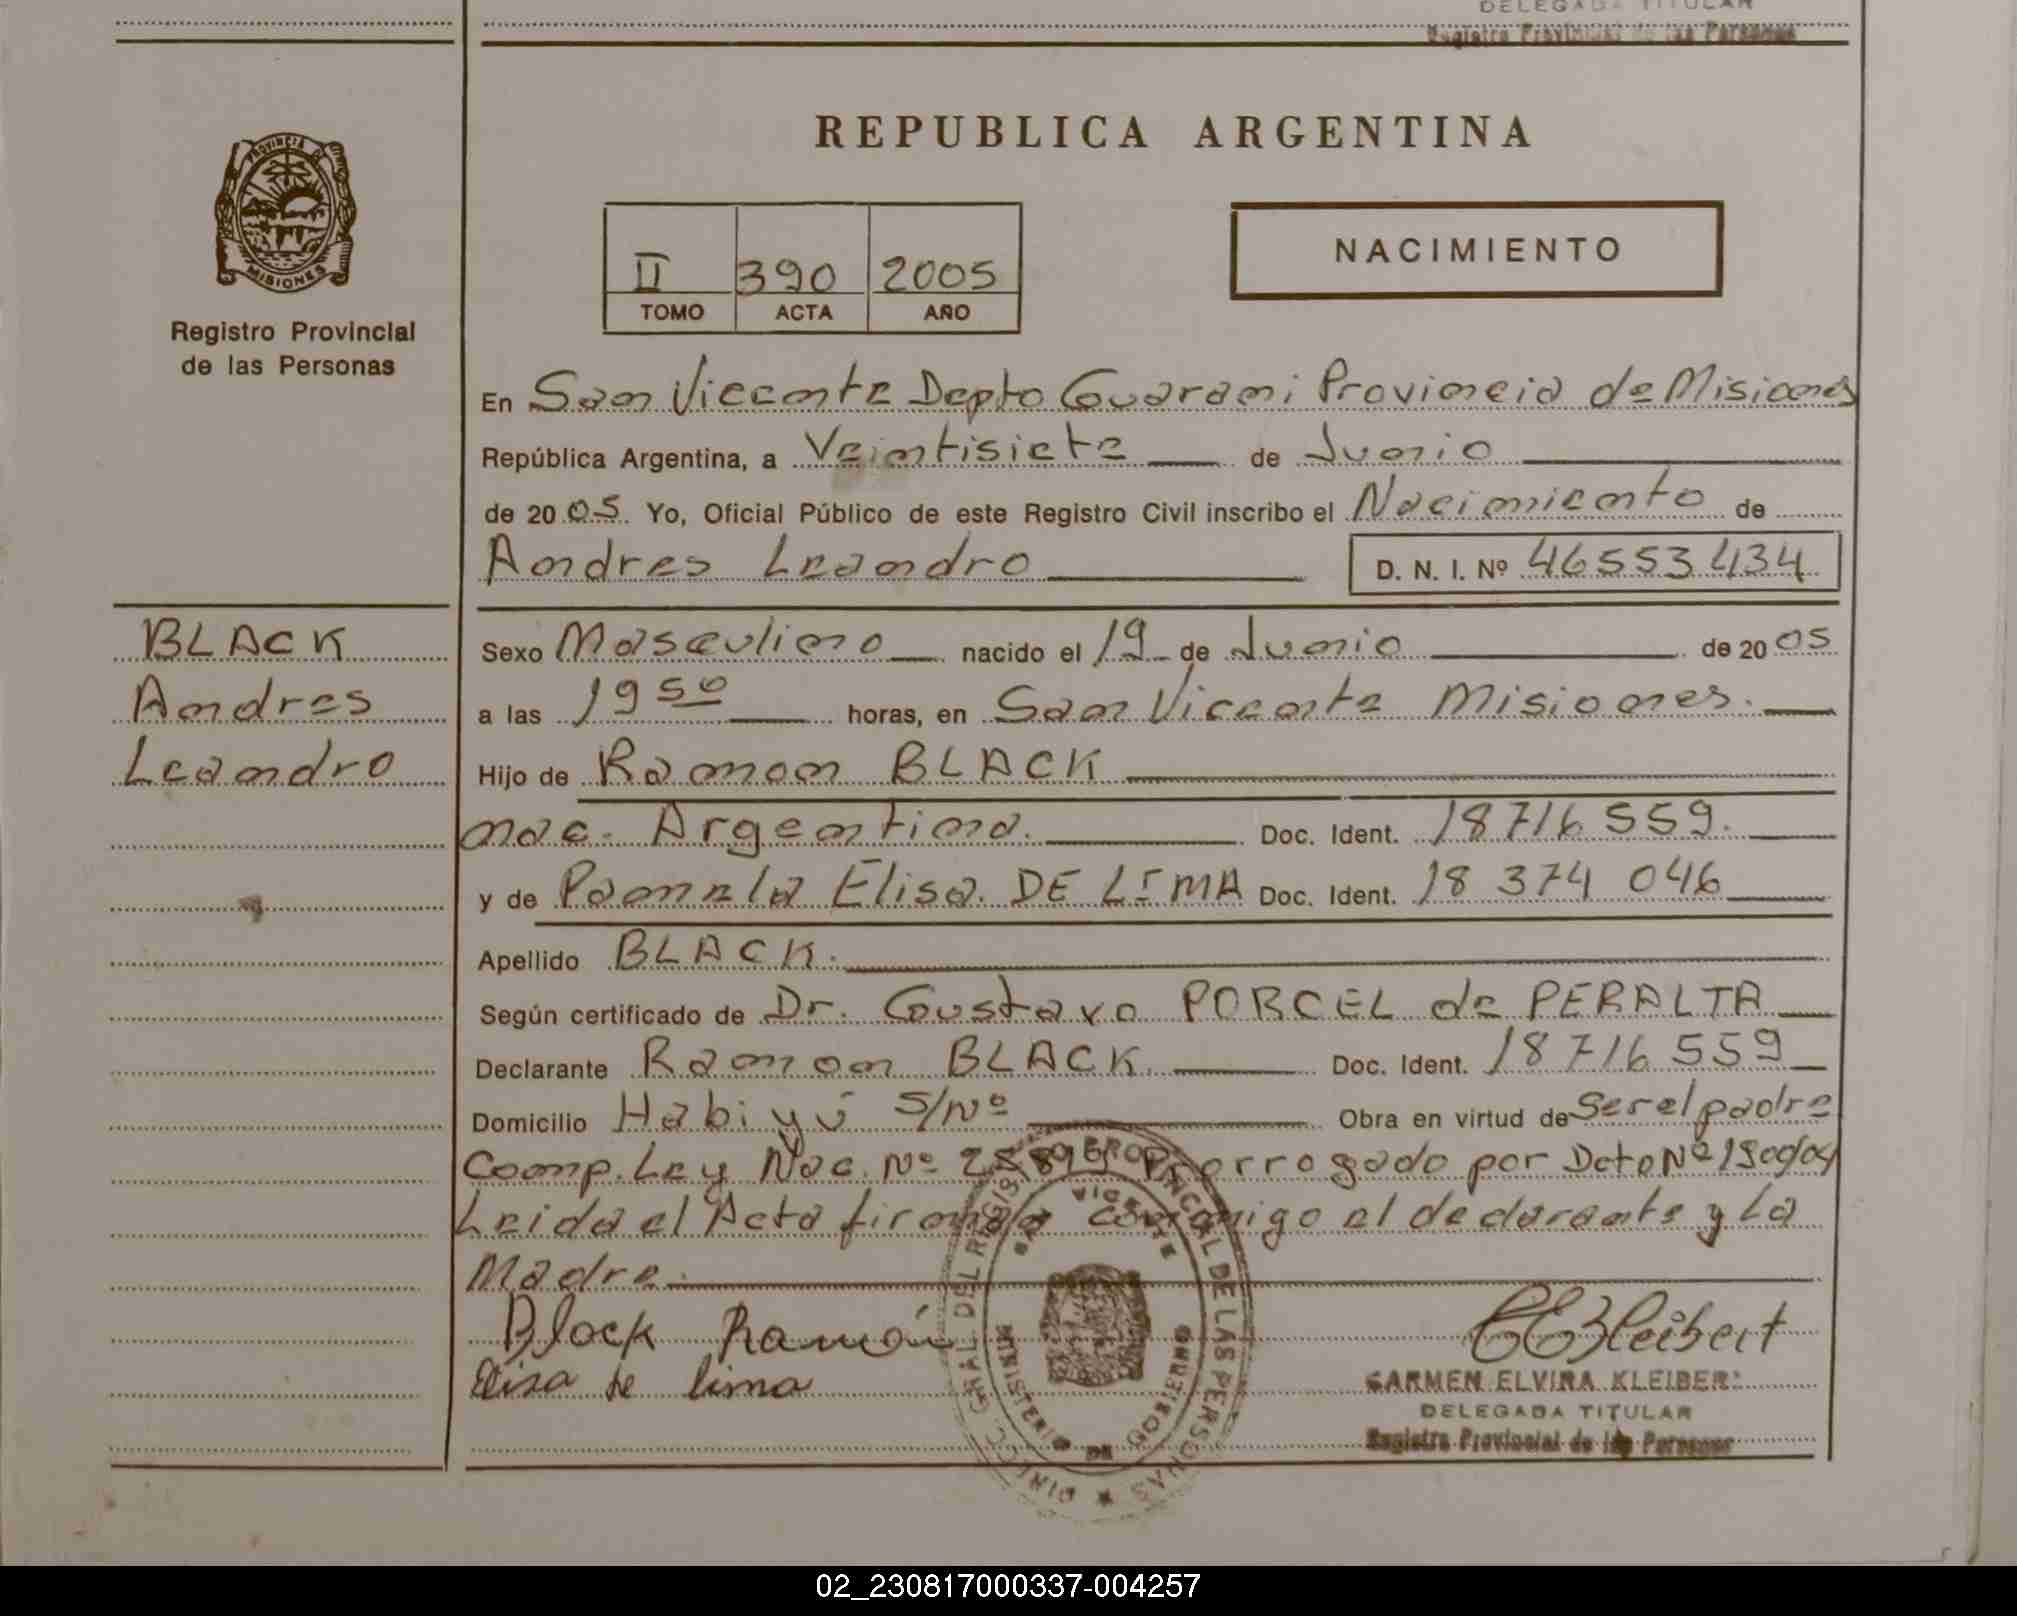 DELEGADA TITULAR
Registro Provincial de las Personas
PROVINCIA DE
MISIONES
Registro Provincial
de las Personas
REPUBLICA ARGENTINA
II 390 2005
TOMO ACTA AÑO
NACIMIENTO
En San Vicente Depto Guarani Provincia de Misiones
República Argentina, a Veintisiete de Junio
de 2005. Yo, Oficial Público de este Registro Civil inscribo el Nacimiento de
Andres Leandro D. N. I. Nº 46553434
BLACK
Andres
Leandro
Sexo Masculino nacido el 19 de Junio de 2005
a las 19 50 horas, en San Vicente Misiones.
Hijo de Ramon BLACK
nac. Argentina. Doc. Ident. 18716559.
y de Pamela Elisa. DE LIMA Doc. Ident. 18 374 046
Apellido BLACK.
Según certificado de Dr. Gustavo PORCEL de PERALTA
Declarante Ramon BLACK Doc. Ident. 18716559
Domicilio Habiyú S/Nº Obra en virtud de Ser el padre
Comp. Ley Nac. Nº Prorrogado por Dcto Nº 1500/04
Leida el Acta firmada conmigo el declarante y La
Madre.
Black Ramón
Elisa de lima
CEKleibert
CARMEN ELVIRA KLEIBERT
DELEGADA TITULAR
Registro Provincial de las Personas
DIRECC. GRAL DEL REGISTRO PROVINCIAL DE LAS PERSONAS
SAN VICENTE
MINISTERIO DE GOBIERNO
02_230817000337-004257